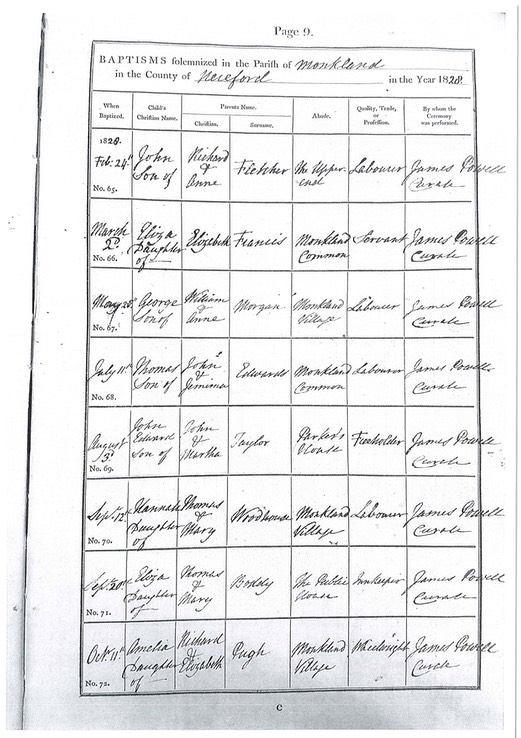 Page 9.
BAPTISMS solemnized in the Parish of Monkland
in the County of Hereford in the Year 1828.
When Baptized. Child's Christian Name. Parents Name. Abode. Quality, Trade, or Profession. By whom the Ceremony was performed.
Christian. Surname.
1828.
Feb: 24th John Son of Richard & Anne Fletcher The Upper-end Labourer James Powell Curate
No. 65.
March 2d. Eliza Daughter of Elizabeth Francis Monkland Common Servant James Powell Curate
No. 66.
May George Son of William & Anne Morgan Monkland Village Labourer James Powell Curate
No. 67.
July 11th Thomas Son of John & Jemima Edwards Monkland Common Labourer James Powell Curate
No. 68.
August 3d. John Edward Son of John & Martha Taylor Parker's House Freeholder James Powell Curate
No. 69.
Sept. 12th Hannah Daughter of Thomas & Mary Woodhouse Monkland Village Labourer James Powell Curate
No. 70.
Sept. 20th Eliza Daughter of Thomas & Mary Boddy The Public House Innkeeper James Powell Curate
No. 71.
Oct. 11th Amelia Daughter of Richard & Elizabeth Pugh Monkland Village Wheelwright James Powell Curate
No. 72.
C